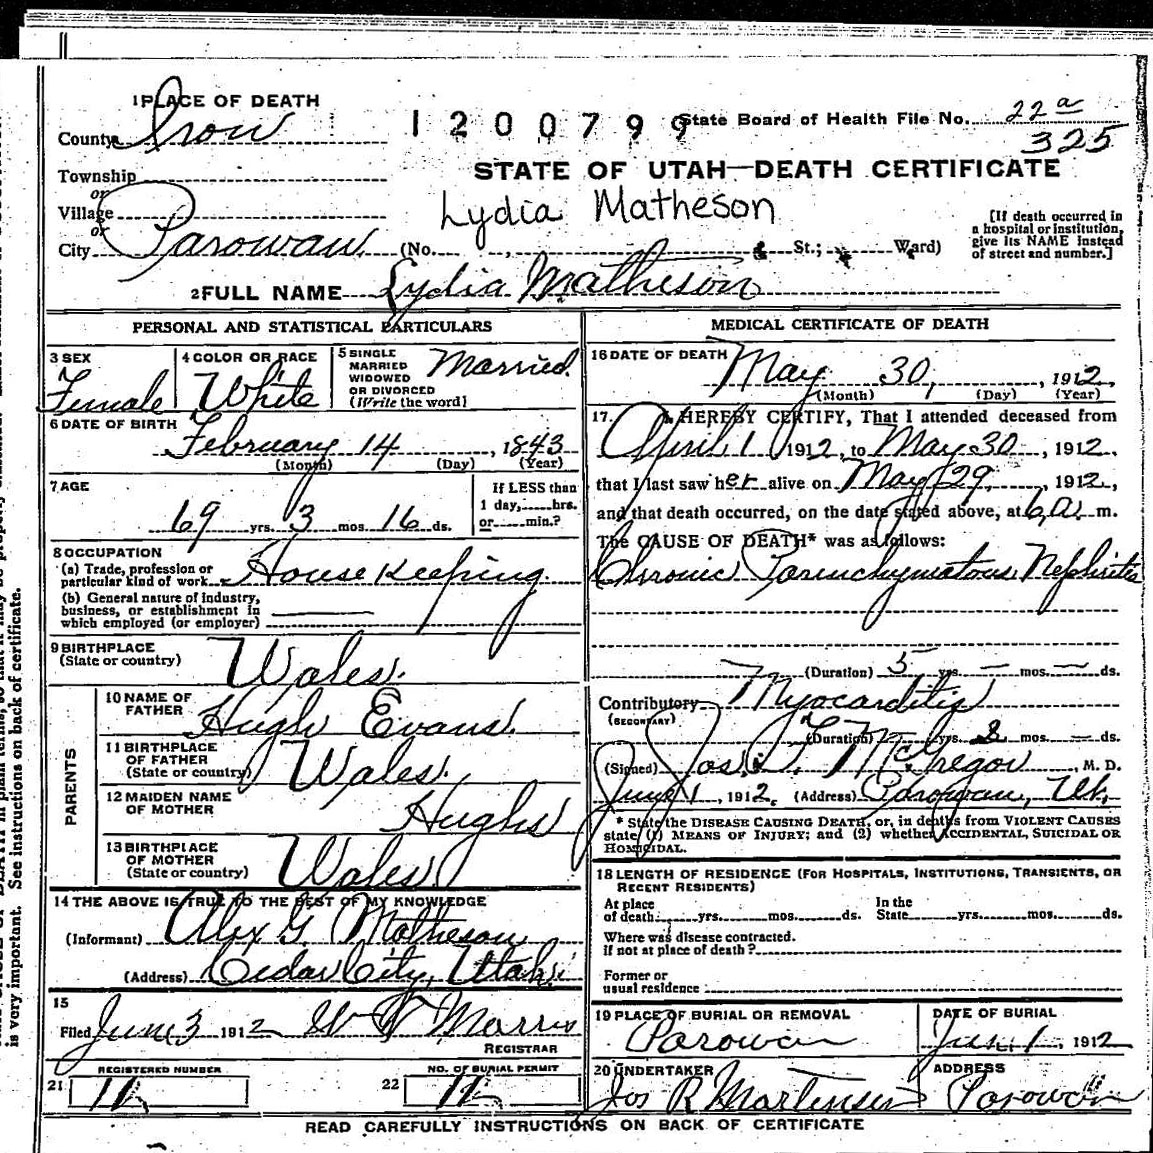 1 PLACE OF DEATH
County Iron
1200799
State Board of Health File No. 22a
325
STATE OF UTAH—DEATH CERTIFICATE
Township
or
Village
or
City Parowan (No. , St.; Ward)
Lydia Matheson
[If death occurred in
a hospital or institution,
give its NAME instead
of street and number.]
2 FULL NAME Lydia Matheson
PERSONAL AND STATISTICAL PARTICULARS
3 SEX
Female
4 COLOR OR RACE
White
5 SINGLE
MARRIED
WIDOWED
OR DIVORCED
(Write the word)
Married.
6 DATE OF BIRTH
February 14, 1843
(Month) (Day) (Year)
7 AGE
69 yrs. 3 mos. 16 ds.
If LESS than
1 day, hrs.
or min.?
8 OCCUPATION
(a) Trade, profession or
particular kind of work House Keeping.
(b) General nature of industry,
business, or establishment in
which employed (or employer)
9 BIRTHPLACE
(State or country)
Wales.
PARENTS
10 NAME OF
FATHER
Hugh Evans.
11 BIRTHPLACE
OF FATHER
(State or country)
Wales.
12 MAIDEN NAME
OF MOTHER
Hughs
13 BIRTHPLACE
OF MOTHER
(State or country)
Wales
14 THE ABOVE IS TRUE TO THE BEST OF MY KNOWLEDGE
(Informant) Alex G. Matheson
(Address) Cedar City, Utah.
15
Filed June 3 1912 Morris
REGISTRAR
REGISTERED NUMBER
21
NO. OF BURIAL PERMIT
22
MEDICAL CERTIFICATE OF DEATH
16 DATE OF DEATH
May 30, , 1912
(Month) (Day) (Year)
17. I HEREBY CERTIFY, That I attended deceased from
April 1 1912, to May 30, 1912,
that I last saw her alive on May 29, 1912,
and that death occurred, on the date stated above, at 6 a. m.
The CAUSE OF DEATH* was as follows:
Chronic Parenchymatous Nephritis
(Duration) 5 yrs. — mos. — ds.
Contributory Myocarditis
(SECONDARY)
(Duration) yrs. mos. — ds.
(Signed) McGregor, M. D.
June 1, 1912. (Address) Parowan, Ut.
* State the DISEASE CAUSING DEATH, or, in deaths from VIOLENT CAUSES
state (1) MEANS OF INJURY; and (2) whether ACCIDENTAL, SUICIDAL OR
HOMICIDAL.
18 LENGTH OF RESIDENCE (FOR HOSPITALS, INSTITUTIONS, TRANSIENTS, OR
RECENT RESIDENTS)
At place
of death yrs. mos. ds.
In the
State yrs. mos. ds.
Where was disease contracted.
if not at place of death?
Former or
usual residence
19 PLACE OF BURIAL OR REMOVAL
Parowan
DATE OF BURIAL
June 1, 1912
20 UNDERTAKER
Jos R Mortensen
ADDRESS
Parowan
READ CAREFULLY INSTRUCTIONS ON BACK OF CERTIFICATE
is very important. See instructions on back of certificate.